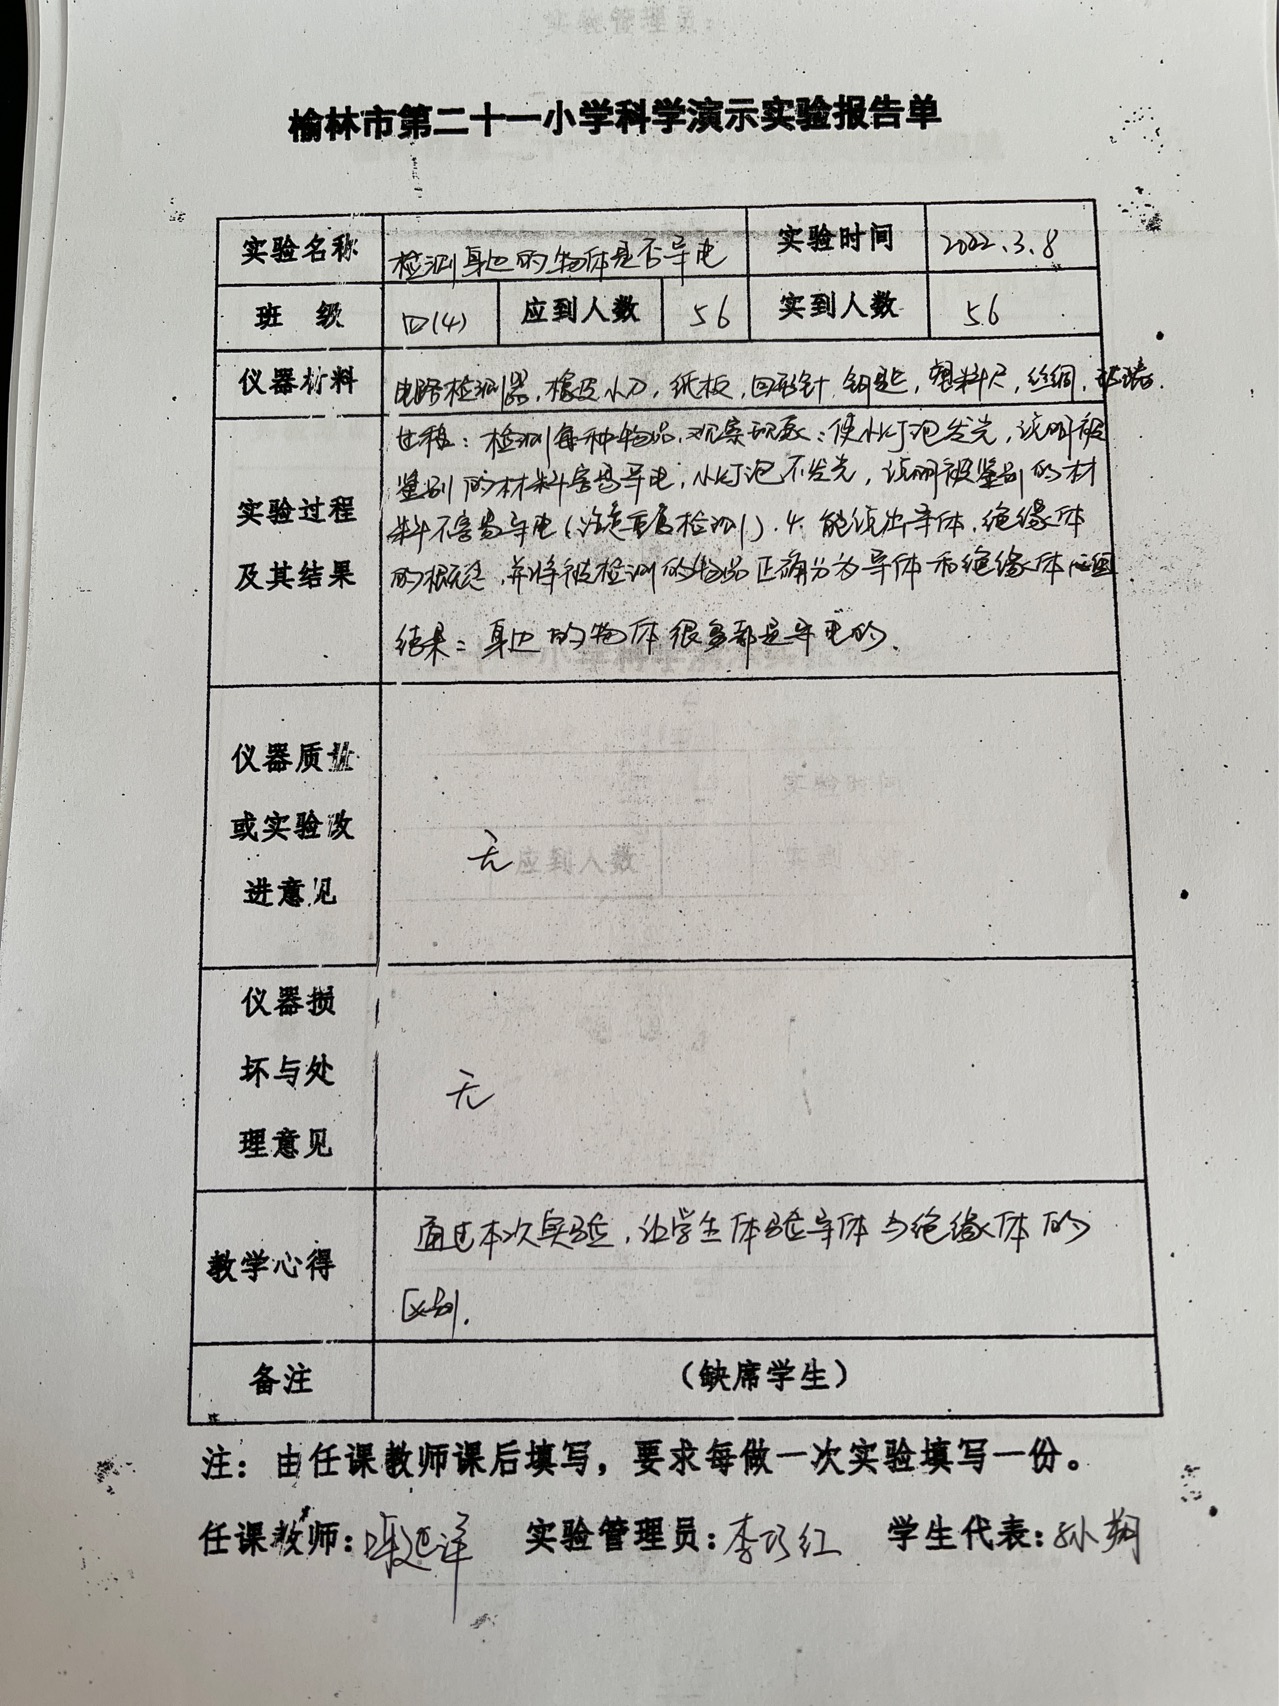 榆林市第二十一小学科学演示实验报告单
实验名称 检测身边的物体是否导电 实验时间 2022.3.8
班 级 四(4) 应到人数 56 实到人数 56
仪器材料 电路检测器,橡皮,小刀,纸板,回形针,钥匙,塑料尺,丝绸,玻璃
实验过程及其结果
过程:检测每种物品,观察现象:使小灯泡发光,说明被
鉴别的材料容易导电;小灯泡不发光,说明被鉴别的材
料不容易导电(注意重复检测).4.能说出导体,绝缘体
的概念,并将被检测的物品正确分为导体和绝缘体
结果:身边的物体很多都是导电的.
仪器质量
或实验改
进意见
无
仪器损
坏与处
理意见
无
教学心得
通过本次实验,让学生体验导体与绝缘体的
区别.
备注 (缺席学生)
注:由任课教师课后填写,要求每做一次实验填写一份。
任课教师: 实验管理员:李巧红 学生代表:孙翔